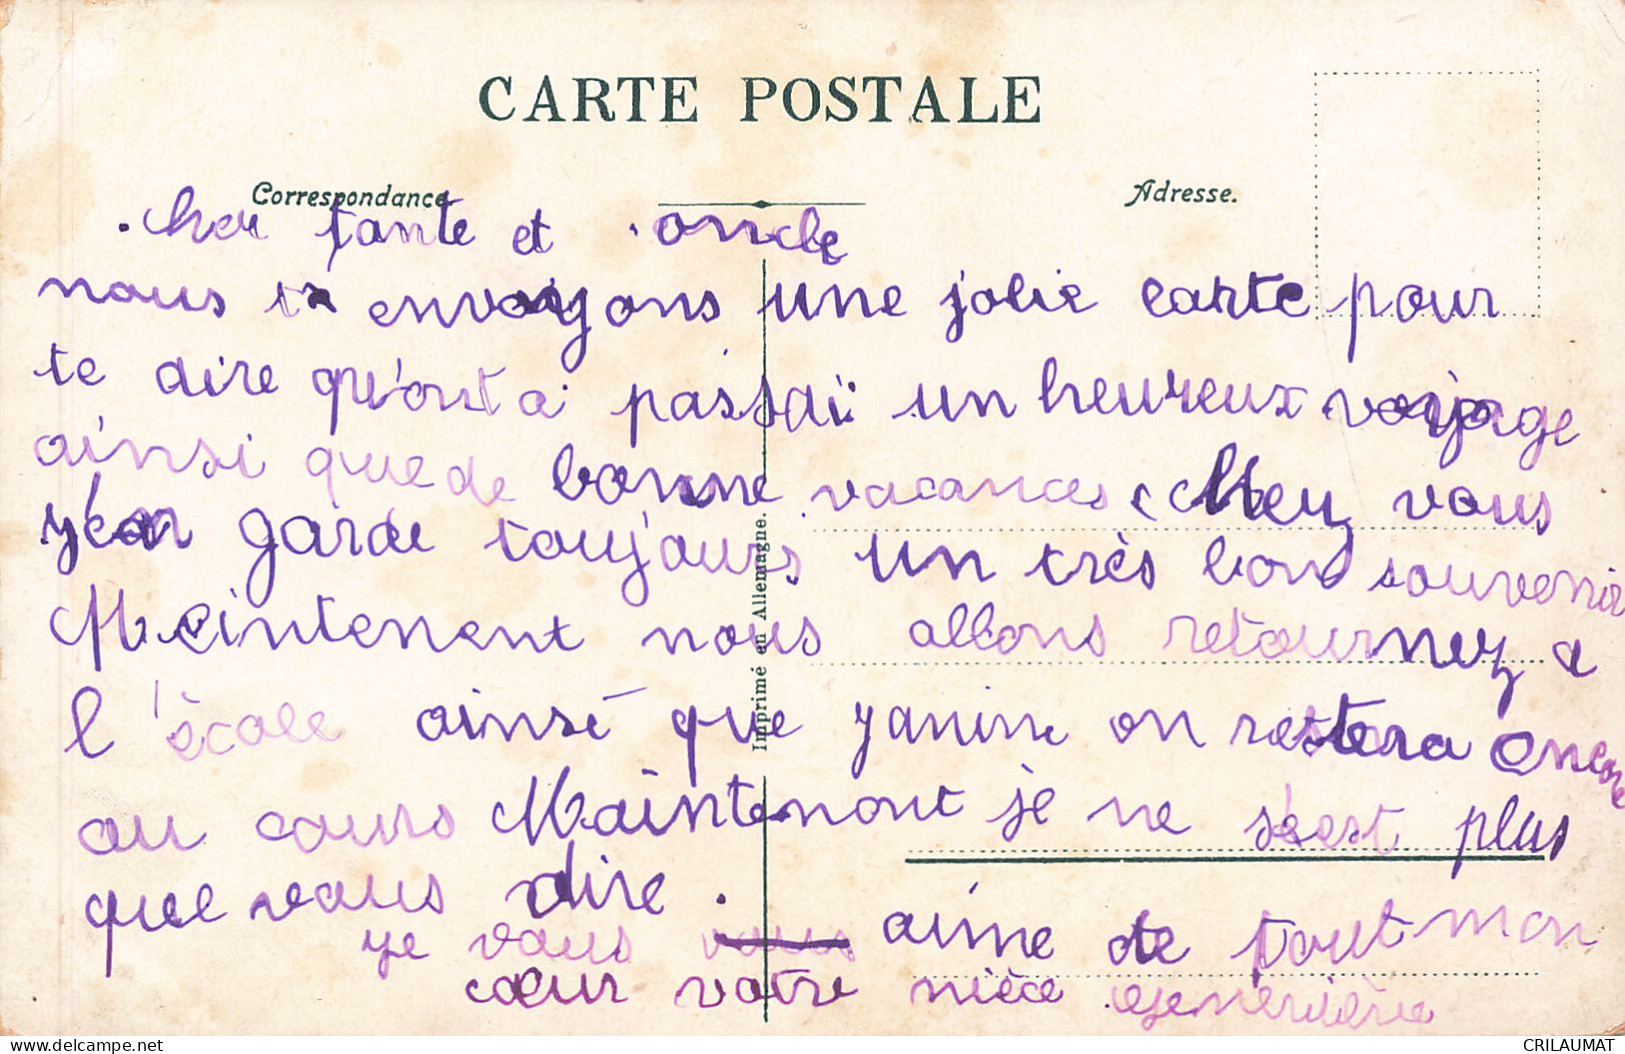 CARTE POSTALE
Correspondance
Adresse.
cher tante et oncle
nous t envoyons une jolie carte pour
te dire qu'ont a passai un heureux voyage
ainsi que de bonne vacances chez vous
j'en garde toujours un très bon souvenir
Meintenent nous allons retournez a
l'école ainsé que Janine on restera encore
au cours Maintenont je ne s'est plus
que vous dire.
je vous vous aime de tout mon
cœur votre nièce Geneviève
Imprimé en Allemagne.
delcampe.net
CRILAUMAT